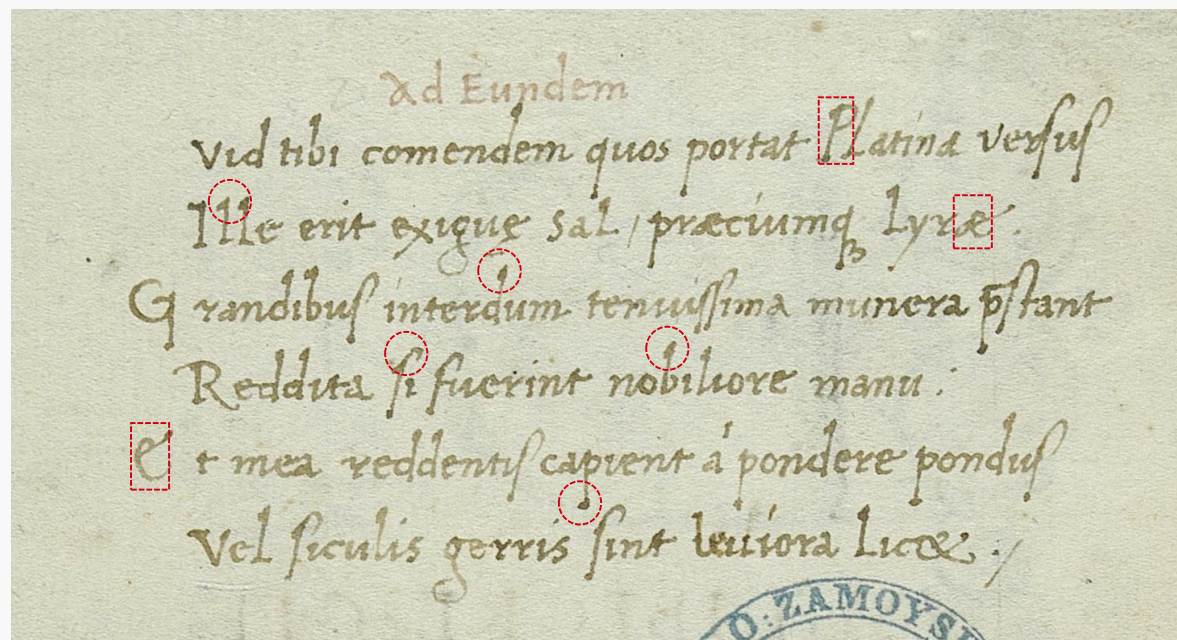 Ad Eundem
Vid tibi comendem quos portat Platina versus
Ille erit exiguę sal / præciumq₃ Lyræ .
G randibus interdum tenuissima munera p̄stant
Reddita si fuerint nobiliore manu :
E t mea reddentis capient á pondere pondus
Vel siculis gerris sint leuiora Licæ . /
O: ZAMOYS